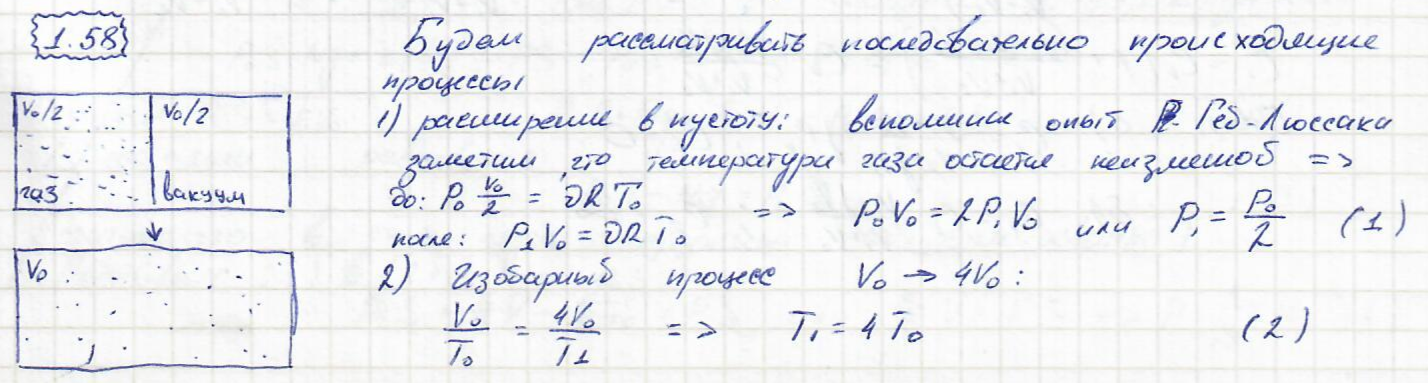 1.58
Будем рассматривать последовательно происходящие
процессы
V₀/2 V₀/2
газ вакуум
V₀
1) расширение в пустоту: вспомнив опыт Гей-Люссака
заметим, что температура газа остаётся неизменной =>
до: P₀ V₀/2 = νRT₀
после: P₁V₀ = νRT₀ => P₀V₀ = 2P₁V₀ или P₁ = P₀/2 (1)
2) Изобарный процесс V₀ → 4V₀:
V₀/T₀ = 4V₀/T₁ => T₁ = 4T₀ (2)